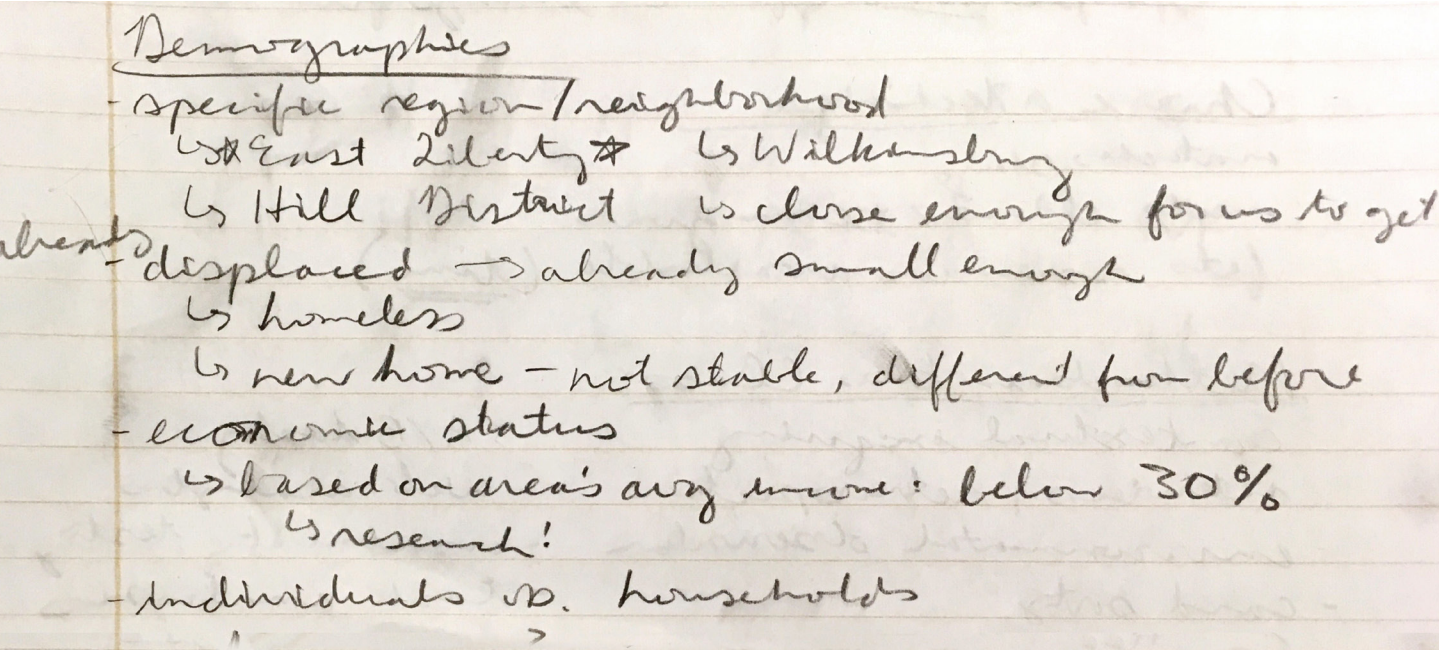 Demographics
- specific region/neighborhood
↳ ☆East Liberty☆ ↳ Wilkinsburg
↳ Hill District ↳ close enough for us to get
already
- displaced → already small enough
↳ homeless
↳ new home – not stable, different from before
- economic status
↳ based on area's avg income: below 30%
↳ research!
- individuals vs. households